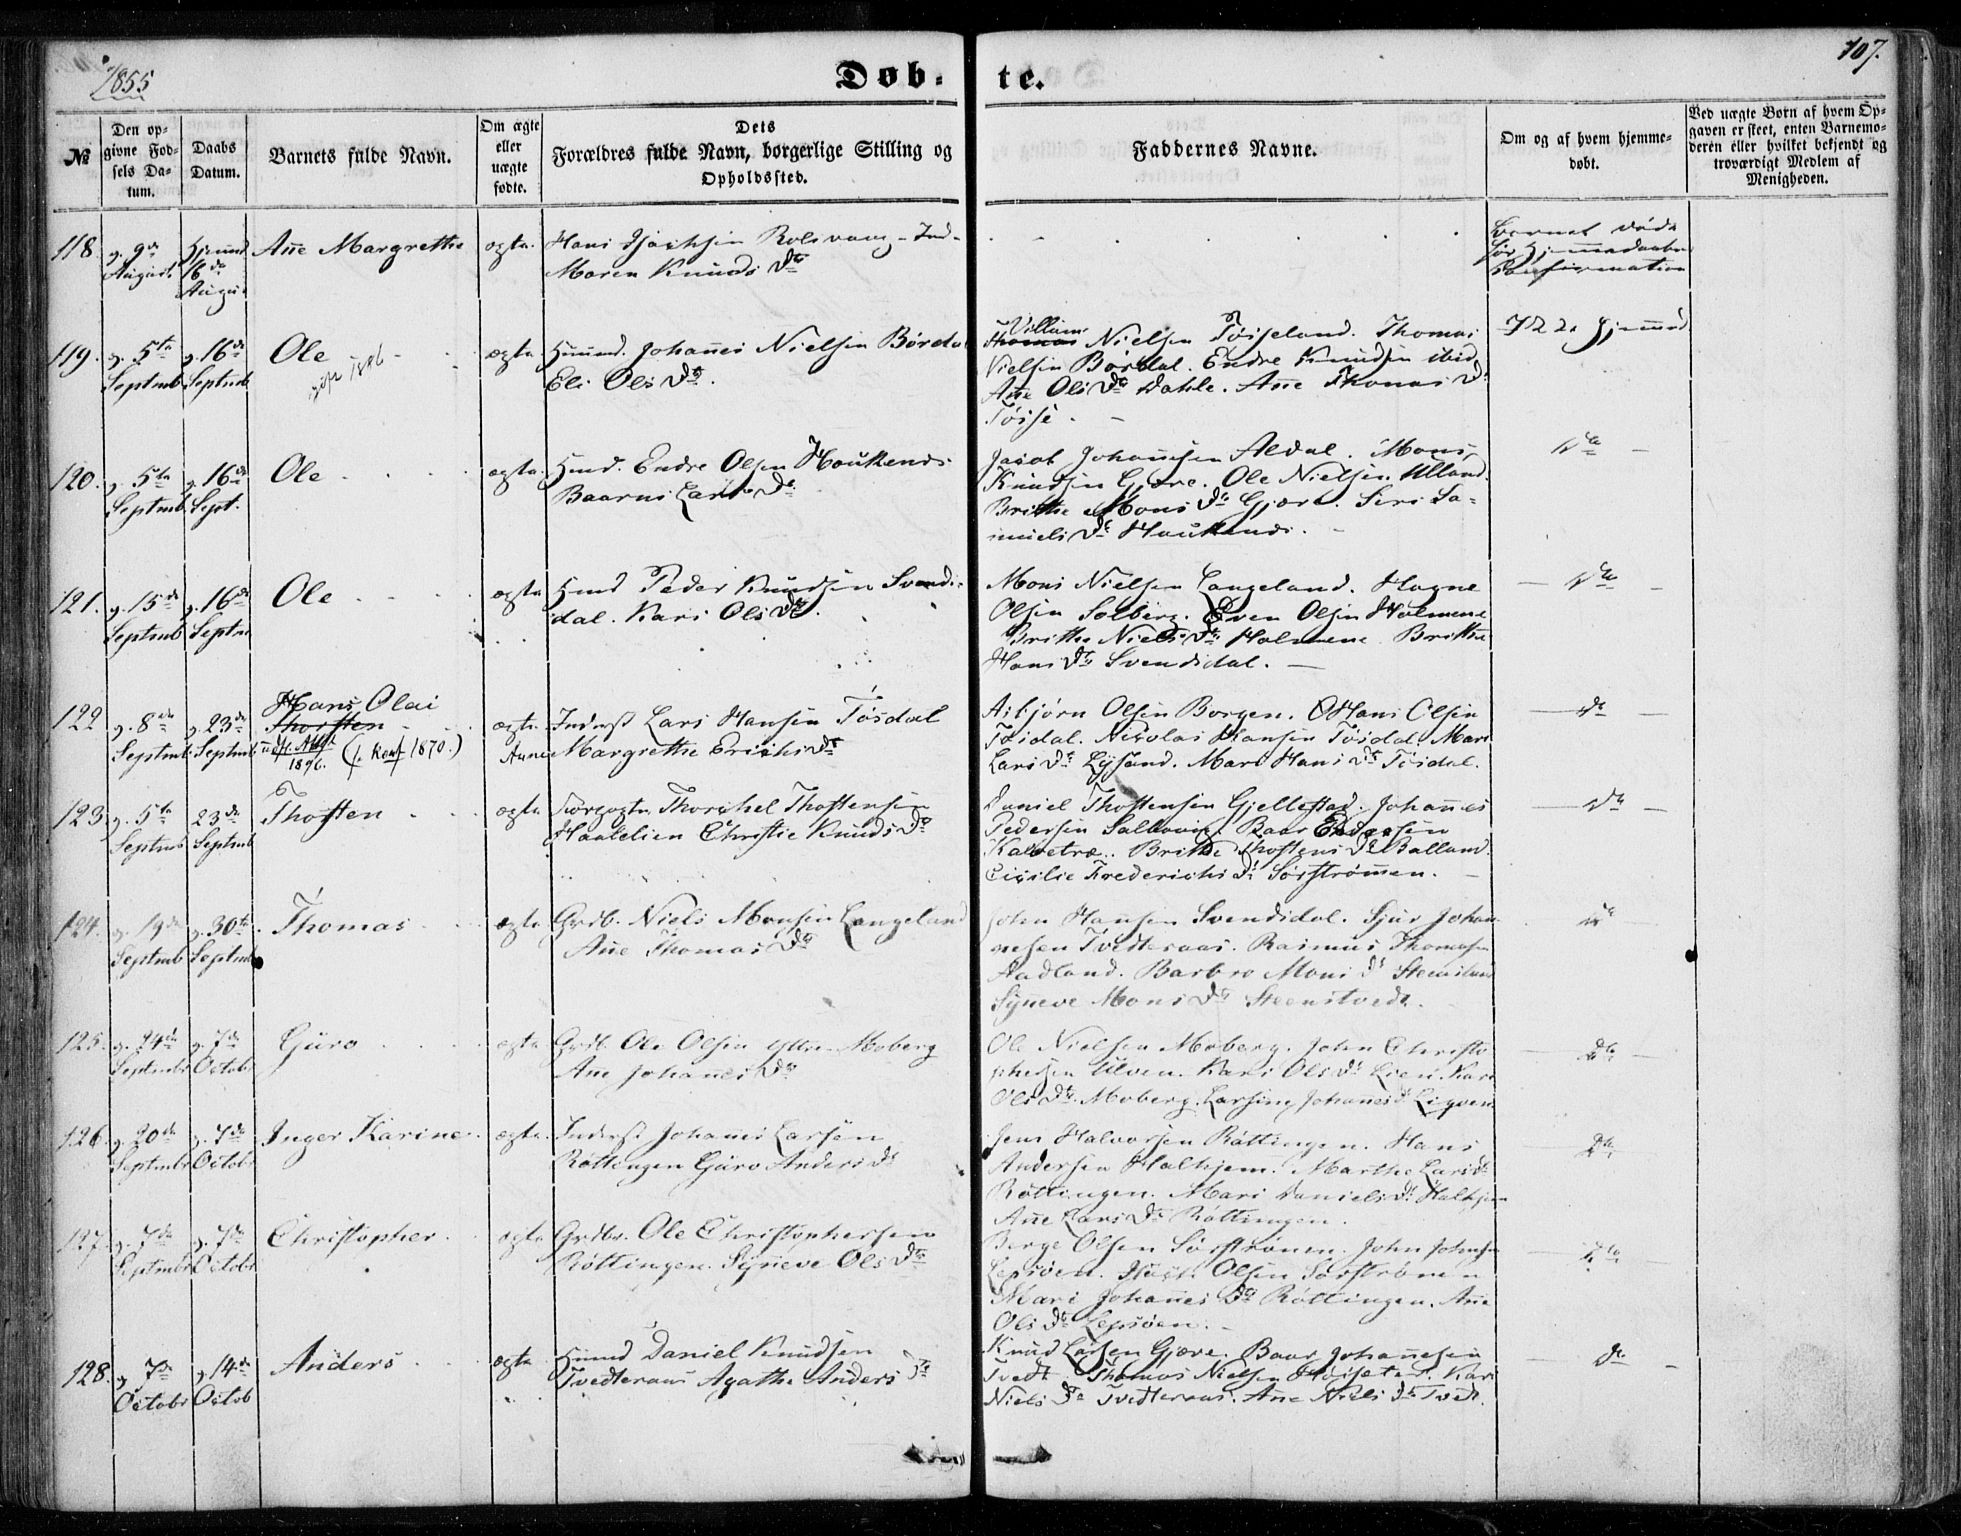 1855
Døb-
te.
107.
№
Den op-
givne Fød-
sels Da-
tum.
Daabs
Datum.
Barnets fulde Navn.
Om ægte
eller
uægte
fødte.
Dets
Forældres fulde Navn, borgerlige Stilling og
Opholdssted.
Faddernes Navne.
Om og af hvem hjemme-
døbt.
Ved uægte Børn af hvem Op-
gaven er skeet, enten Barnemo-
deren eller hvilket bekjendt og
troværdigt Medlem af
Menigheden.
118.
9de
August
16de
August
Ane Margrethe
ægte
Rolsvaag
Maren Knuds Dtr
Barnet døde
før
Confirmation
119.
5te
Septmb
16de
Septmb
Ole
1896
ægte
Husmd. Johanes Nielsen Børdal
Eli Ols Dtr.
Villum
Thomas Nielsen Tøsseland. Thomas
Nielsen Børdal. Endre Knudsen ibid.
Ane Ols Dtr Dahle. Ane Thomas D.
Tøsse.
120.
5te
Septmb
16de
Sept.
Ole
ægte
Endre Olsen Haukenes
Lars Dtr
Jacob Johannesen Aldal. Mons
Knudsen Gjøre. Ole Nielsen Ulland.
Brithe Mons Dtr Gjøre. Siri Sa-
muels Dtr Haukenes.
Do
121.
15de
Septmb
16de
Septm
Ole
ægte
Husmd Peder Knudsen Svends-
dal. Kari Ols Dtr.
Mons Nielsen Langeland. Hagne
Olsen Solberg. Even Olsen Holmene
Brithe Niels Dtr Holmene. Brithe
Hans Dtr Svendsdal.
Do
122
8de
Septmb
23de
Septmb
Hans Olai
Thorsten
udst. Attst.
1896. (f. konf 1870.)
ægte
Inderst Lars Hansen Tøsdal
Anne Margrethe Erichs Dtr
Asbjørn Olsen Borgen. Hans Olsen
Tøsdal. Nicolai Hansen Tøsdal. Mari
Lars Dtr Lysand. Mari Hans Dtr Tøsdal.
Do
123.
5te
Septmb
23de
Septmb
Thosten
ægte
Thorchel Thostensen
Haalelien Christie Knuds Dtr
Daniel Thostensen Gjellestad. Johannes
Pedersen Sallevig. Baar Endresen
Kalvetræ. Brithe Thostens Dtr Balland.
Cicilie Frederichs Dtr Sørstrømen.
Do
124.
19de
Septmb
30te
Septmb
Thomas
ægte
Grdb. Niels Monsen Langeland
Ane Thomas Dtr
John Hansen Svendsdal. Sjur Johan-
nesen Tvedteraas. Rasmus Thomasen
Hadland. Barbro Mons Dtr
Synneve Mons Dtr Steenstvedt.
125.
24de
Septmbr
7de
Octobr
Guro
ægte
Grdb. Ole Olsen ytre Moberg
Ane Johanes Dtr
Ole Nielsen Moberg. John Christo-
phersen Ulven. Kari Ols Dtr Lien. Kari
Ols Dtr Moberg. Johanes Dtr
Do
126.
20de
Septmbr
7de
Octobr
Inger Karine
ægte
Inderst Johanes Larsen
Røttingen Guro Anders Dtr
Jens Halvorsen Røttingen. Hans
Andersen Halhjem. Marthe Lars Dtr
Røttingen. Mari Daniels Dtr Halhjem
Ane Lars Dtr Røttingen.
Do
127.
7de
Septmbr
7de
Octobr
Christopher
ægte
Grdbr. Ole Christophersen
Røttingen. Synneve Ols Dtr
Børge Olsen Sørstrønen. John Johnsen
Lepsøen. Olsen Sørstrønen
Mari Johanes Dtr Røttingen. Ane
Ols Dtr Lepsøen.
Do
128.
7de
Octobr
14de
Octob
Anders
ægte
Husmd Daniel Knudsen
Tvedteraas Agathe Anders Dtr
Knud Larsen Gjøre. Baar Johanesen
Tvedt. Thomas Nielsen Høiseter. Kari
Niels Dtr Tvedteraas. Ane Niels Dtr Tvedt.
Do